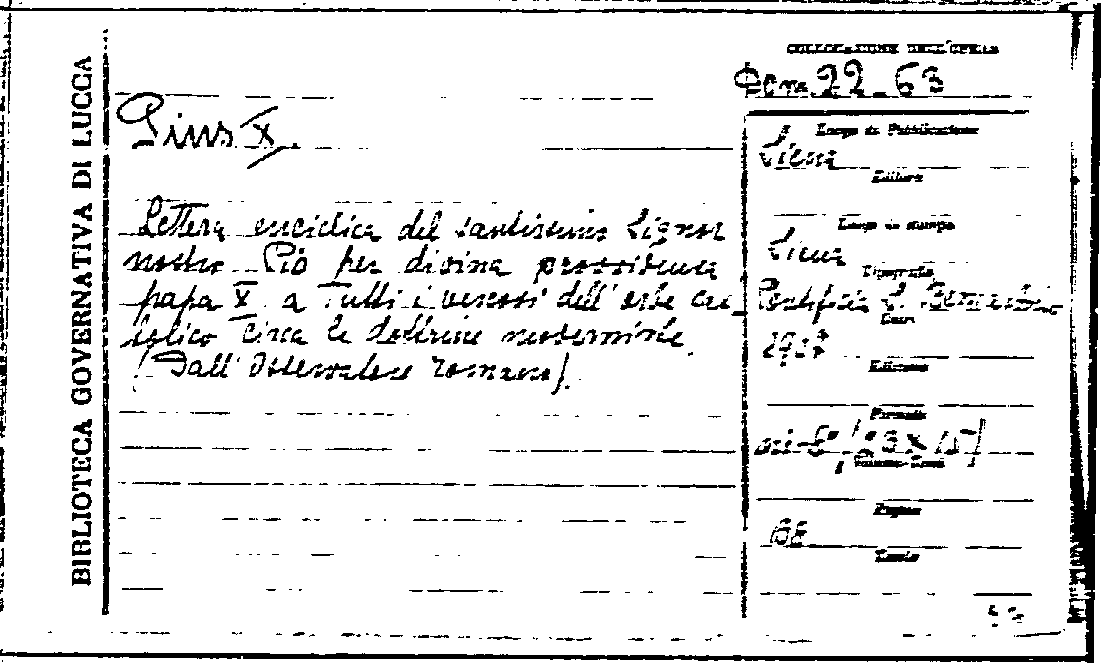 BIBLIOTECA GOVERNATIVA DI LUCCA
COLLOCAZIONE DELL'OPERA
22-63
Pius X.
Lettera enciclica del santissimo Signor
nostro Pio per divina provvidenza
papa X a tutti i vescovi dell'orbe cat
tolico circa le dottrine moderniste
(Dall'Osservatore romano).
Luogo di Pubblicazione
Siena
Editore
Luogo di stampa
Siena
Tipografia
Pontificia S. Bernardino
Data
1907
Edizione
Formato
Pagine